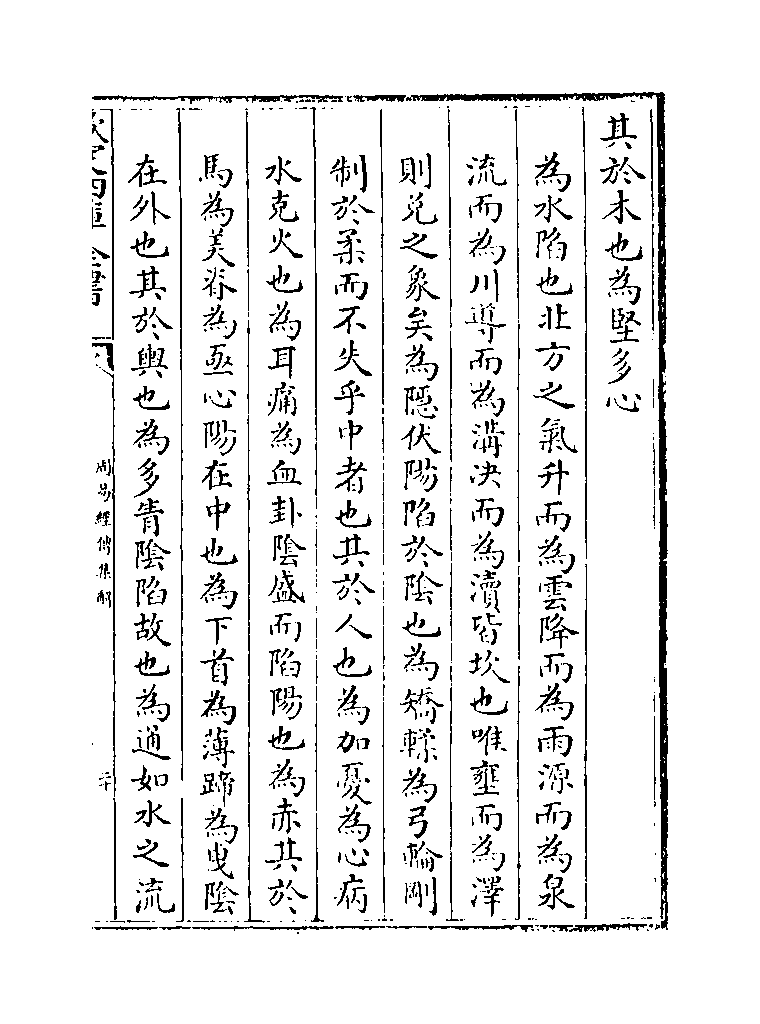 其於木也為堅多心
為水陷也北方之氣升而為雲降而為雨源而為泉
流而為川導而為溝决而為瀆皆坎也唯壅而為澤
則兌之象矣為隱伏陽陷於陰也為矯輮為弓輪剛
制於柔而不失乎中者也其於人也為加憂為心病
水克火也為耳痛為血卦陰盛而陷陽也為赤其於
馬為美脊為亟心陽在中也為下首為薄蹄為曳陰
在外也其於輿也為多眚陰陷故也為通如水之流
欽定四庫全書
周易經傳集解
二十